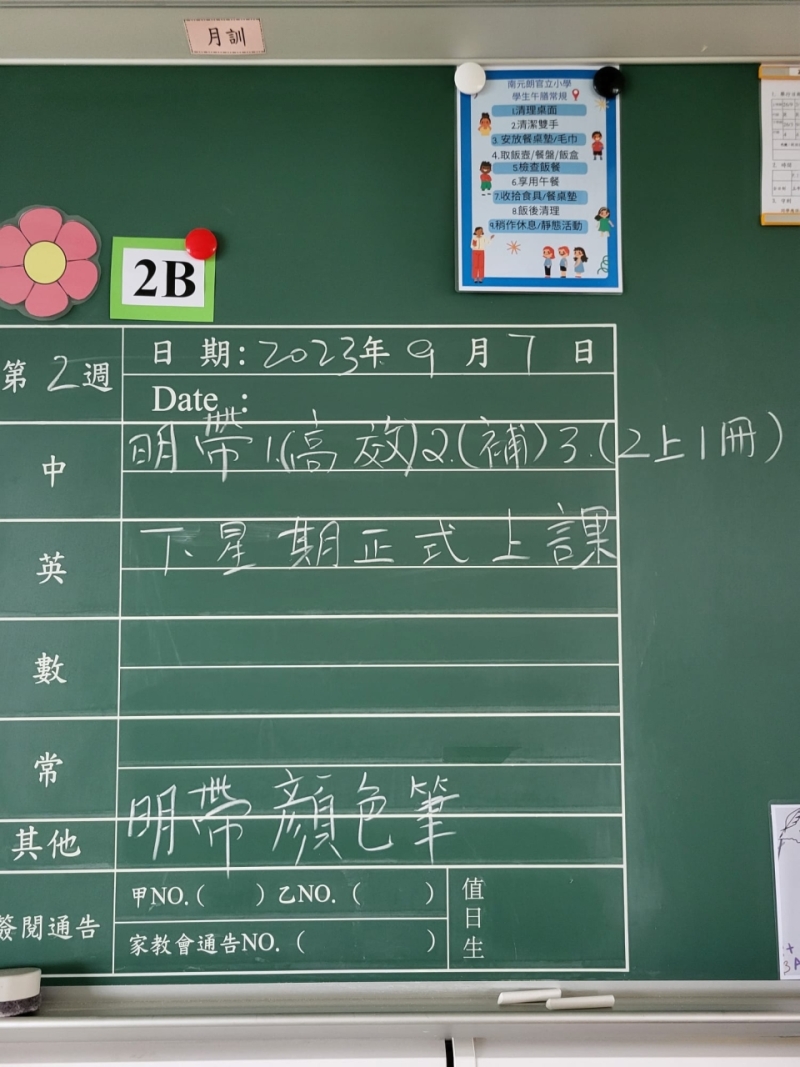 月訓
南元朗官立小學
學生午膳常規
1.清理桌面
2.清潔雙手
3.安放餐桌墊/毛巾
4.取飯壺/餐盤/飯盒
5.檢查飯餐
6.享用午餐
7.收拾食具/餐桌墊
8.飯後清理
9.稍作休息/靜態活動
2B
第2週
日期:2023年9月7日
Date :
中
明帶1.(高效)2.(補)3.(2上1冊)
英
下星期正式上課
數
常
其他
明帶顏色筆
簽閱通告
甲NO.( )乙NO.( )
家教會通告NO.( )
值日生